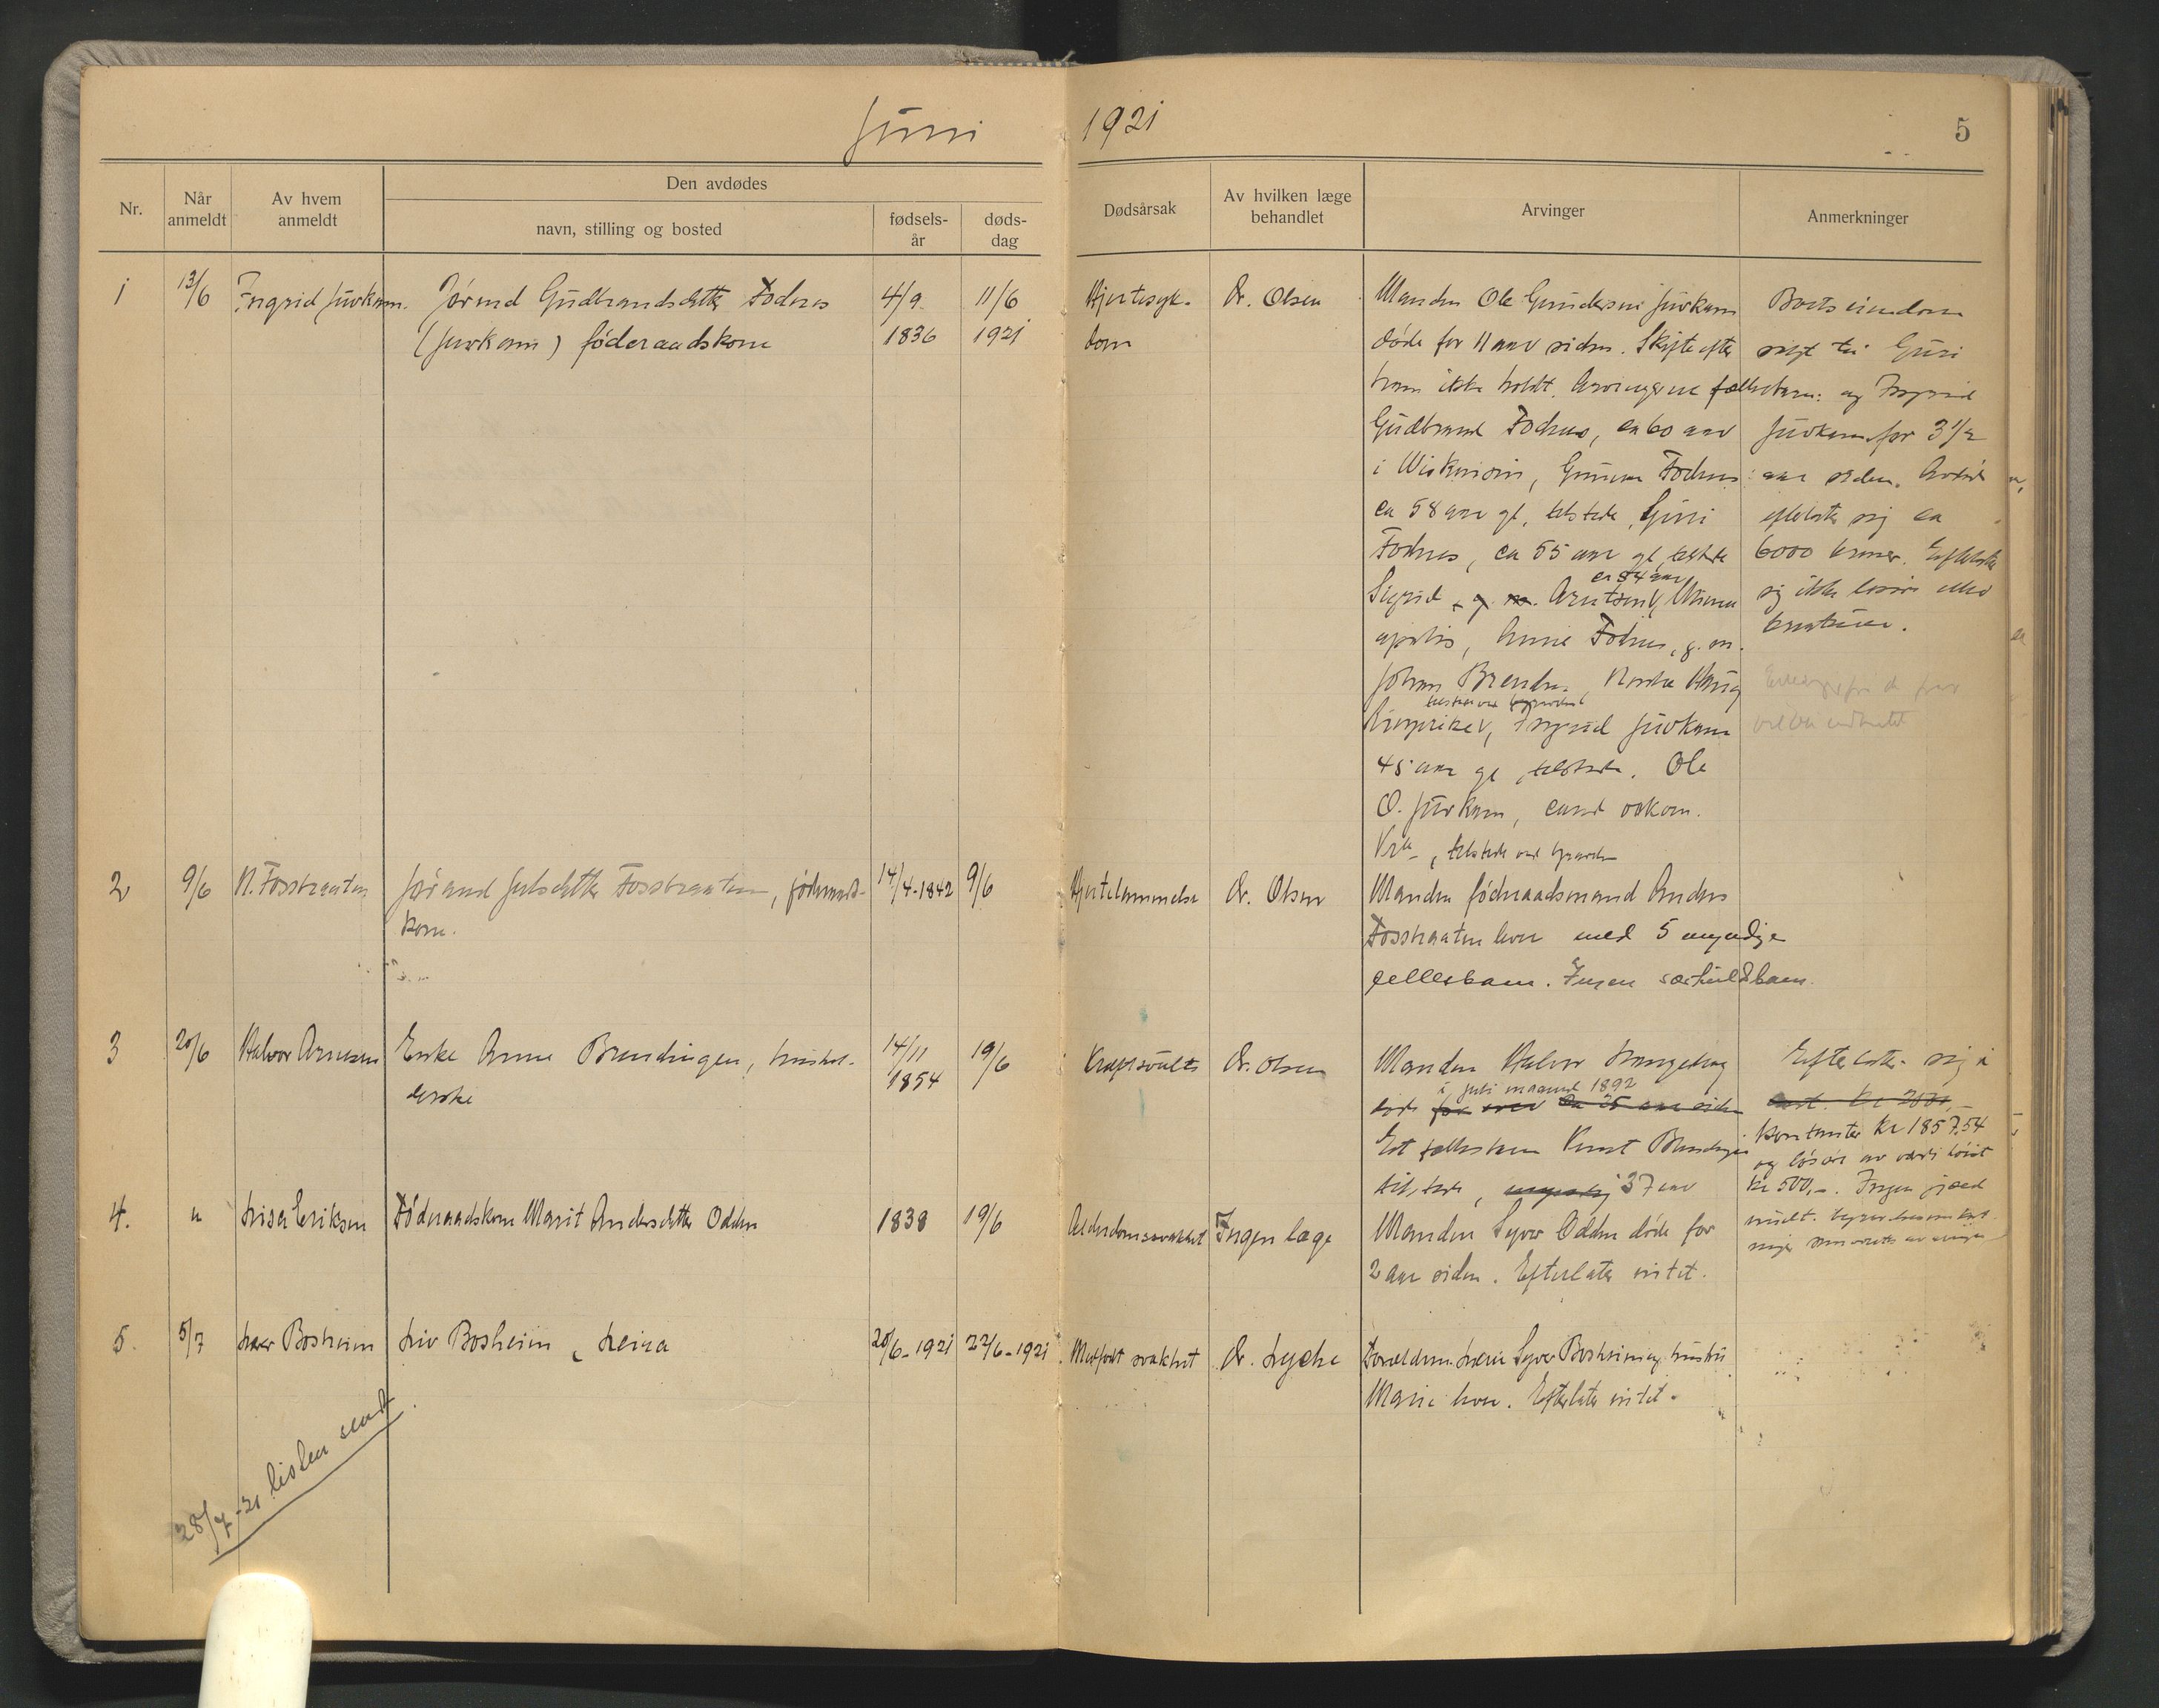 Juni 1921
5
Nr.
Når anmeldt
Av hvem anmeldt
Den avdødes
navn, stilling og bosted
fødsels-år
døds-dag
Dødsårsak
Av hvilken læge behandlet
Arvinger
Anmerkninger
1
13/6
Ingrid Juvkam.
Jørand Gudbrandsdatter Fodnes
(Juvkam) føderaadskone
4/9
1836
11/6
1921
Hjertesyk-
dom
Dr. Olsen
Manden Ole Gundersen Juvkam
døde for 11 aar siden. Skifte efter
ham ikke holdt. Arvingerne fællesbarn:
Gudbrand Fodnes, ca 60 aar
i Wiskonsin, Gunnar Fodnes
ca 58 aar gl, tilstede, Guri
Fodnes, ca 55 aar gl, tilstede
ca 54 aar
Sigrid g. m. Arntsen, Minne
apolis, Anne Fodnes, g. m.
Johan Brenden, Norske Haug
tilstede ved
Ringerike, Ingrid Juvkam
45 aar gl, tilstede. Ole
O. Juvkam, cand oekon.
Kra, tilstede ved
Boets eiendom
solgt til Guri
og Ingrid
Juvkam for 3 1/2
aar siden. Avdøde
efterlater sig ca
6000 kroner. Efterlater
sig ikke løsøre eller
kreaturer.
2
9/6
N. Fosstraaten
Jørand Julsdatter Fosstraaten, føderaads-
kone.
14/4-1842
9/6
Hjertelammelse
Dr. Olsen
Manden føderaadsmand Anders
Fosstraaten lever med 5 myndige
fellesbarn. Ingen særkuldsbarn.
3
20/6
Halvor Arnesen
Enke Anne Brendingen, hushol-
derske
14/11
1854
19/6
Dr. Olsen
Manden Halvor
i juli maaned 1892
døde for over ca 25 aar siden
Et fellesbarn Knut Brendingen
tilstede, myndig 37 aar
Efterlater sig i
Kontanter kr 1857,54
og løsøre av værdi høist
kr 500,-. Ingen gjæld
4.
"
Lisa Eriksen
Føderaadskone Marit Andersdatter Odden
1838
19/6
Alderdomssvakhet
Ingen læge
Manden Syver Odden døde for
2 aar siden. Efterlater intet.
5.
5/7
Lærer Bosheim
Liv Bosheim, Leira
20/6-1921
22/6-1921
Medfødt svakhet
Dr. Lyche
Forældrene Lærer Syver Bosheim og hustru
Marie lever. Efterlater intet.
28/7-21 listen sendt